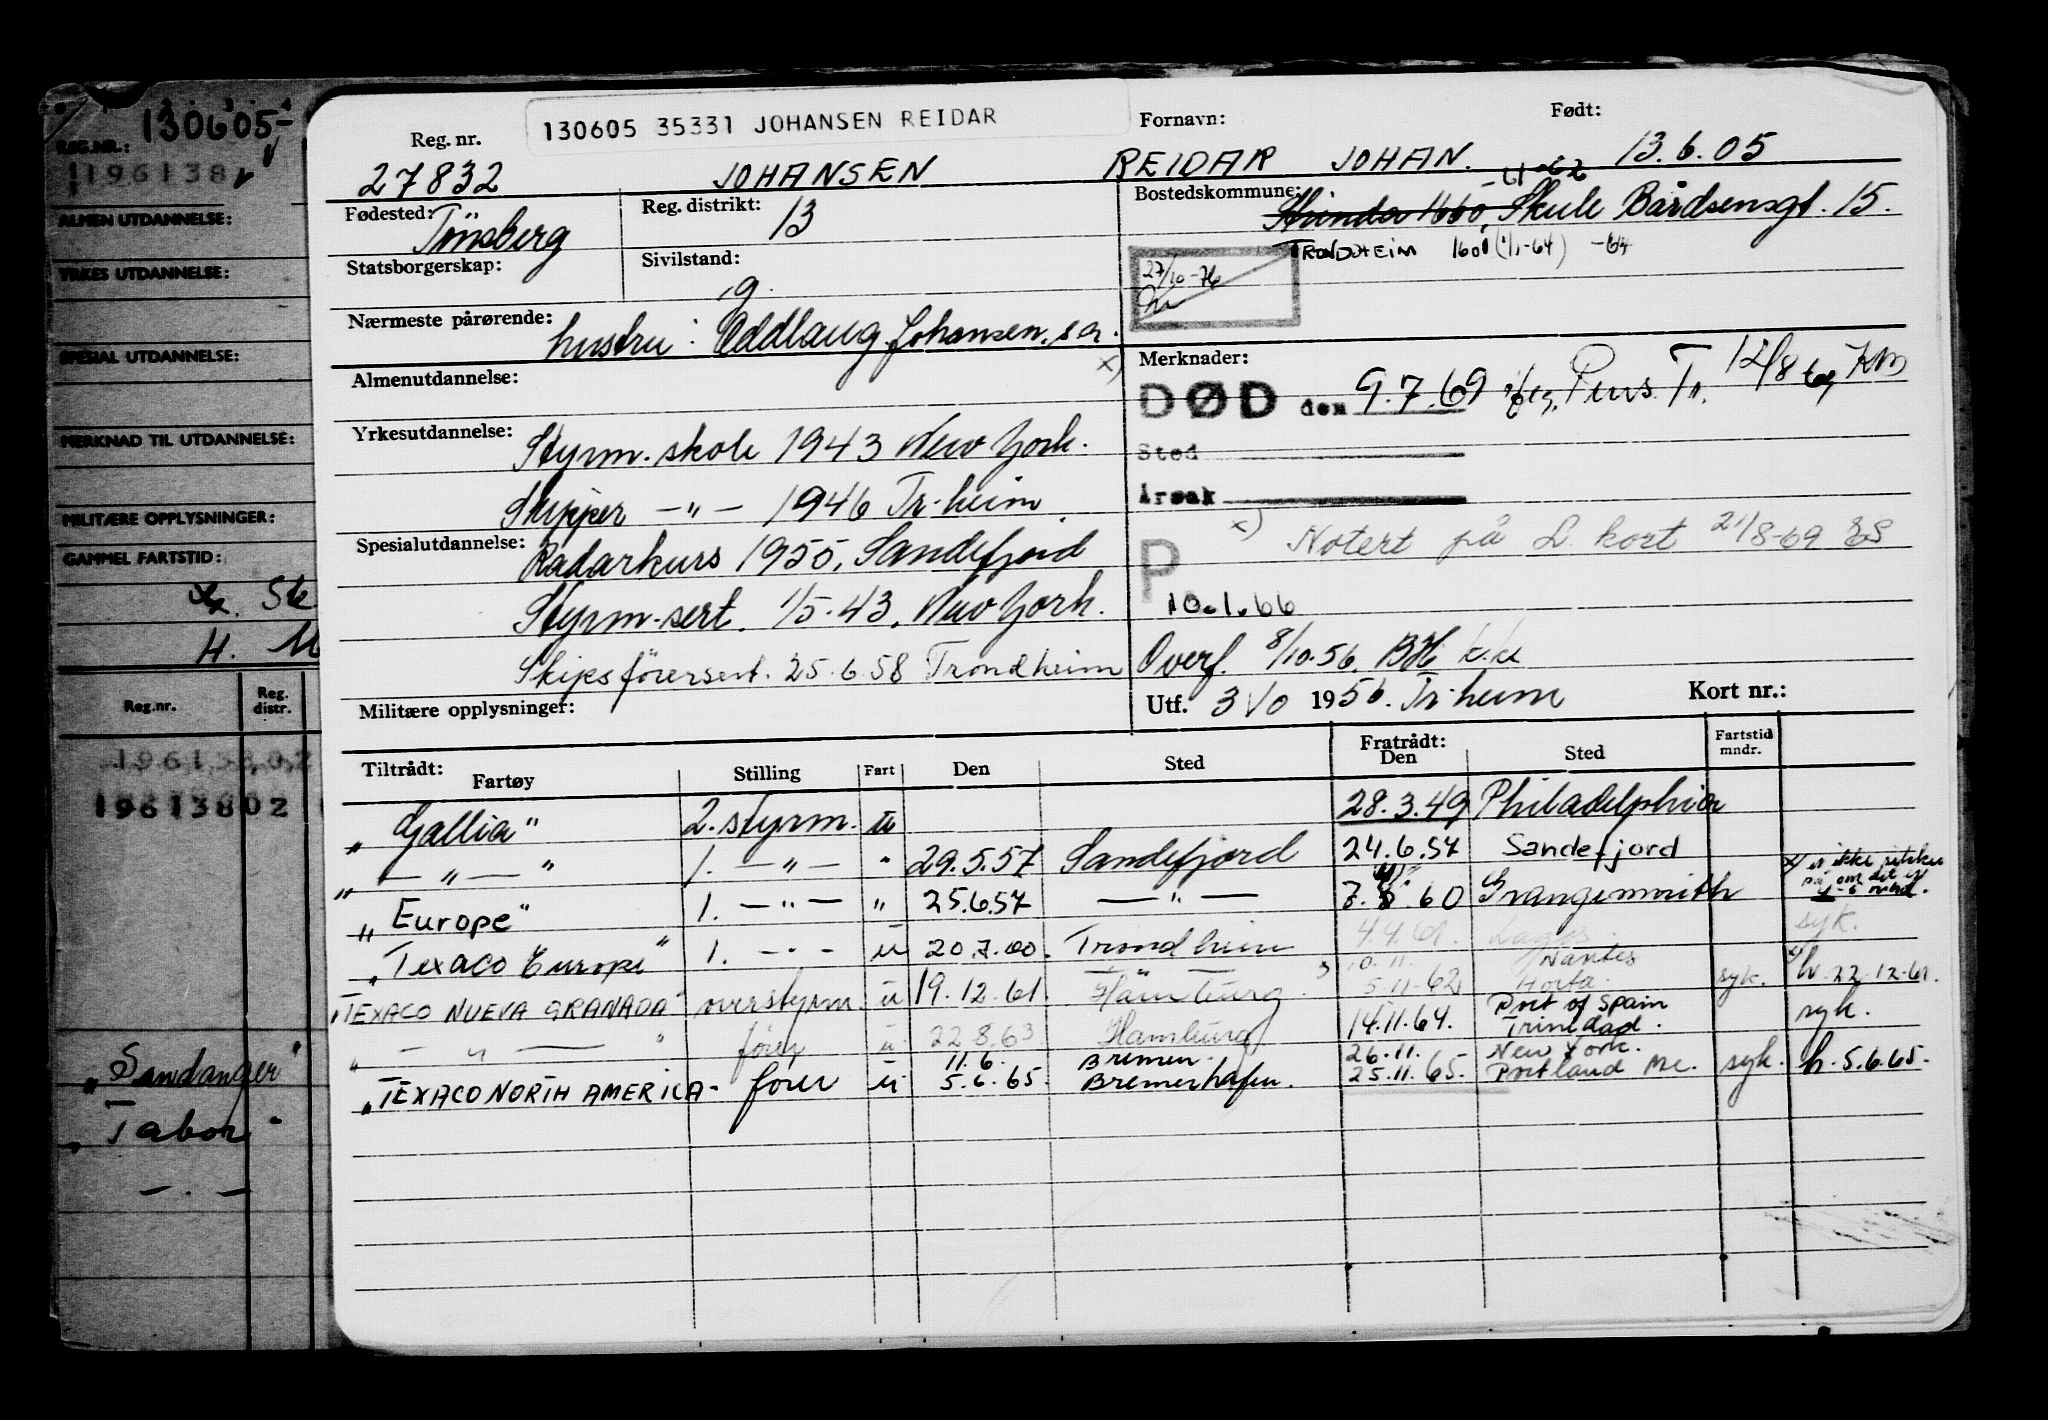 130605-
REG.NR.:
1196138
ALMEN UTDANNELSE:
YRKES UTDANNELSE:
SPESIAL UTDANNELSE:
MERKNAD TIL UTDANNELSE:
MILITÆRE OPPLYSNINGER:
GAMMEL FARTSTID:
H.
Reg.nr. Reg. distr.
19613802
19613802
"Sandanger"
"Tabor"
— " —
Reg. nr. 130605 35331 JOHANSEN REIDAR Fornavn: Født:
27832 JOHANSEN REIDAR JOHAN. 13.6.05
Fødested: Tønsberg Reg. distrikt: 13 Bostedskommune: Strinda 1660, -61-62 Skule Bårdsensgt. 15.
TRONDHEIM 1601 (1/1-64) -64
Statsborgerskap: Sivilstand: g.
27/10-76
Nærmeste pårørende: hustru: Oddlaug Johansen, s.a.
Almenutdannelse: x)
Merknader:
DØD den 9.7.69 Pens. Tr. 12/8 69 KM
Yrkesutdannelse: Styrm. skole 1943 New York.
Sted
Skipper — " — 1946 Tr.heim.
Årsak
x) Notert på L. kort 21/8-69
Spesialutdannelse: Radarkurs 1955, Sandefjord
P.
Styrm.sert. 1/5-43, New York.
10.1.66
Skipsførersert. 25.6.58 Trondheim
Overf. 8/10.56. BH
Militære opplysninger:
Utf. 3/10 1956. Tr.heim Kort nr.:
Tiltrådt: Fartøy Stilling Fart Den Sted Fratrådt: Den Sted Fartstid mndr.
"Gallia" 2. styrm. u 28.3.49 Philadelphia
" — " — " 1. — " — " 29.5.57 Sandefjord 24.6.57 Sandefjord
"Europe" 1. — " — " 25.6.57 — " — 60 Grangemouth x) er ikke sikker på om det er 4-5 mnd.
"Texaco Europe" 1. — " — u 20.7.60. Trondheim 4.4.61. syk.
"TEXACO NUEVA GRANADA" overstyrm. u 19.12.61. Hamburg 10.11. Nantes 5.11.62 Horta syk. h. 22.12.61.
" — " — " fører u 22.8.63 Hamburg 14.11.64. Port of Spain Trinidad. syk.
"TEXACO NORTH AMERICA- fører u 11.6. 5.6.65. Bremen. Bremerhafen. 26.11. 25.11.65. New York. Portland Me. syk. h. 5.6.65.